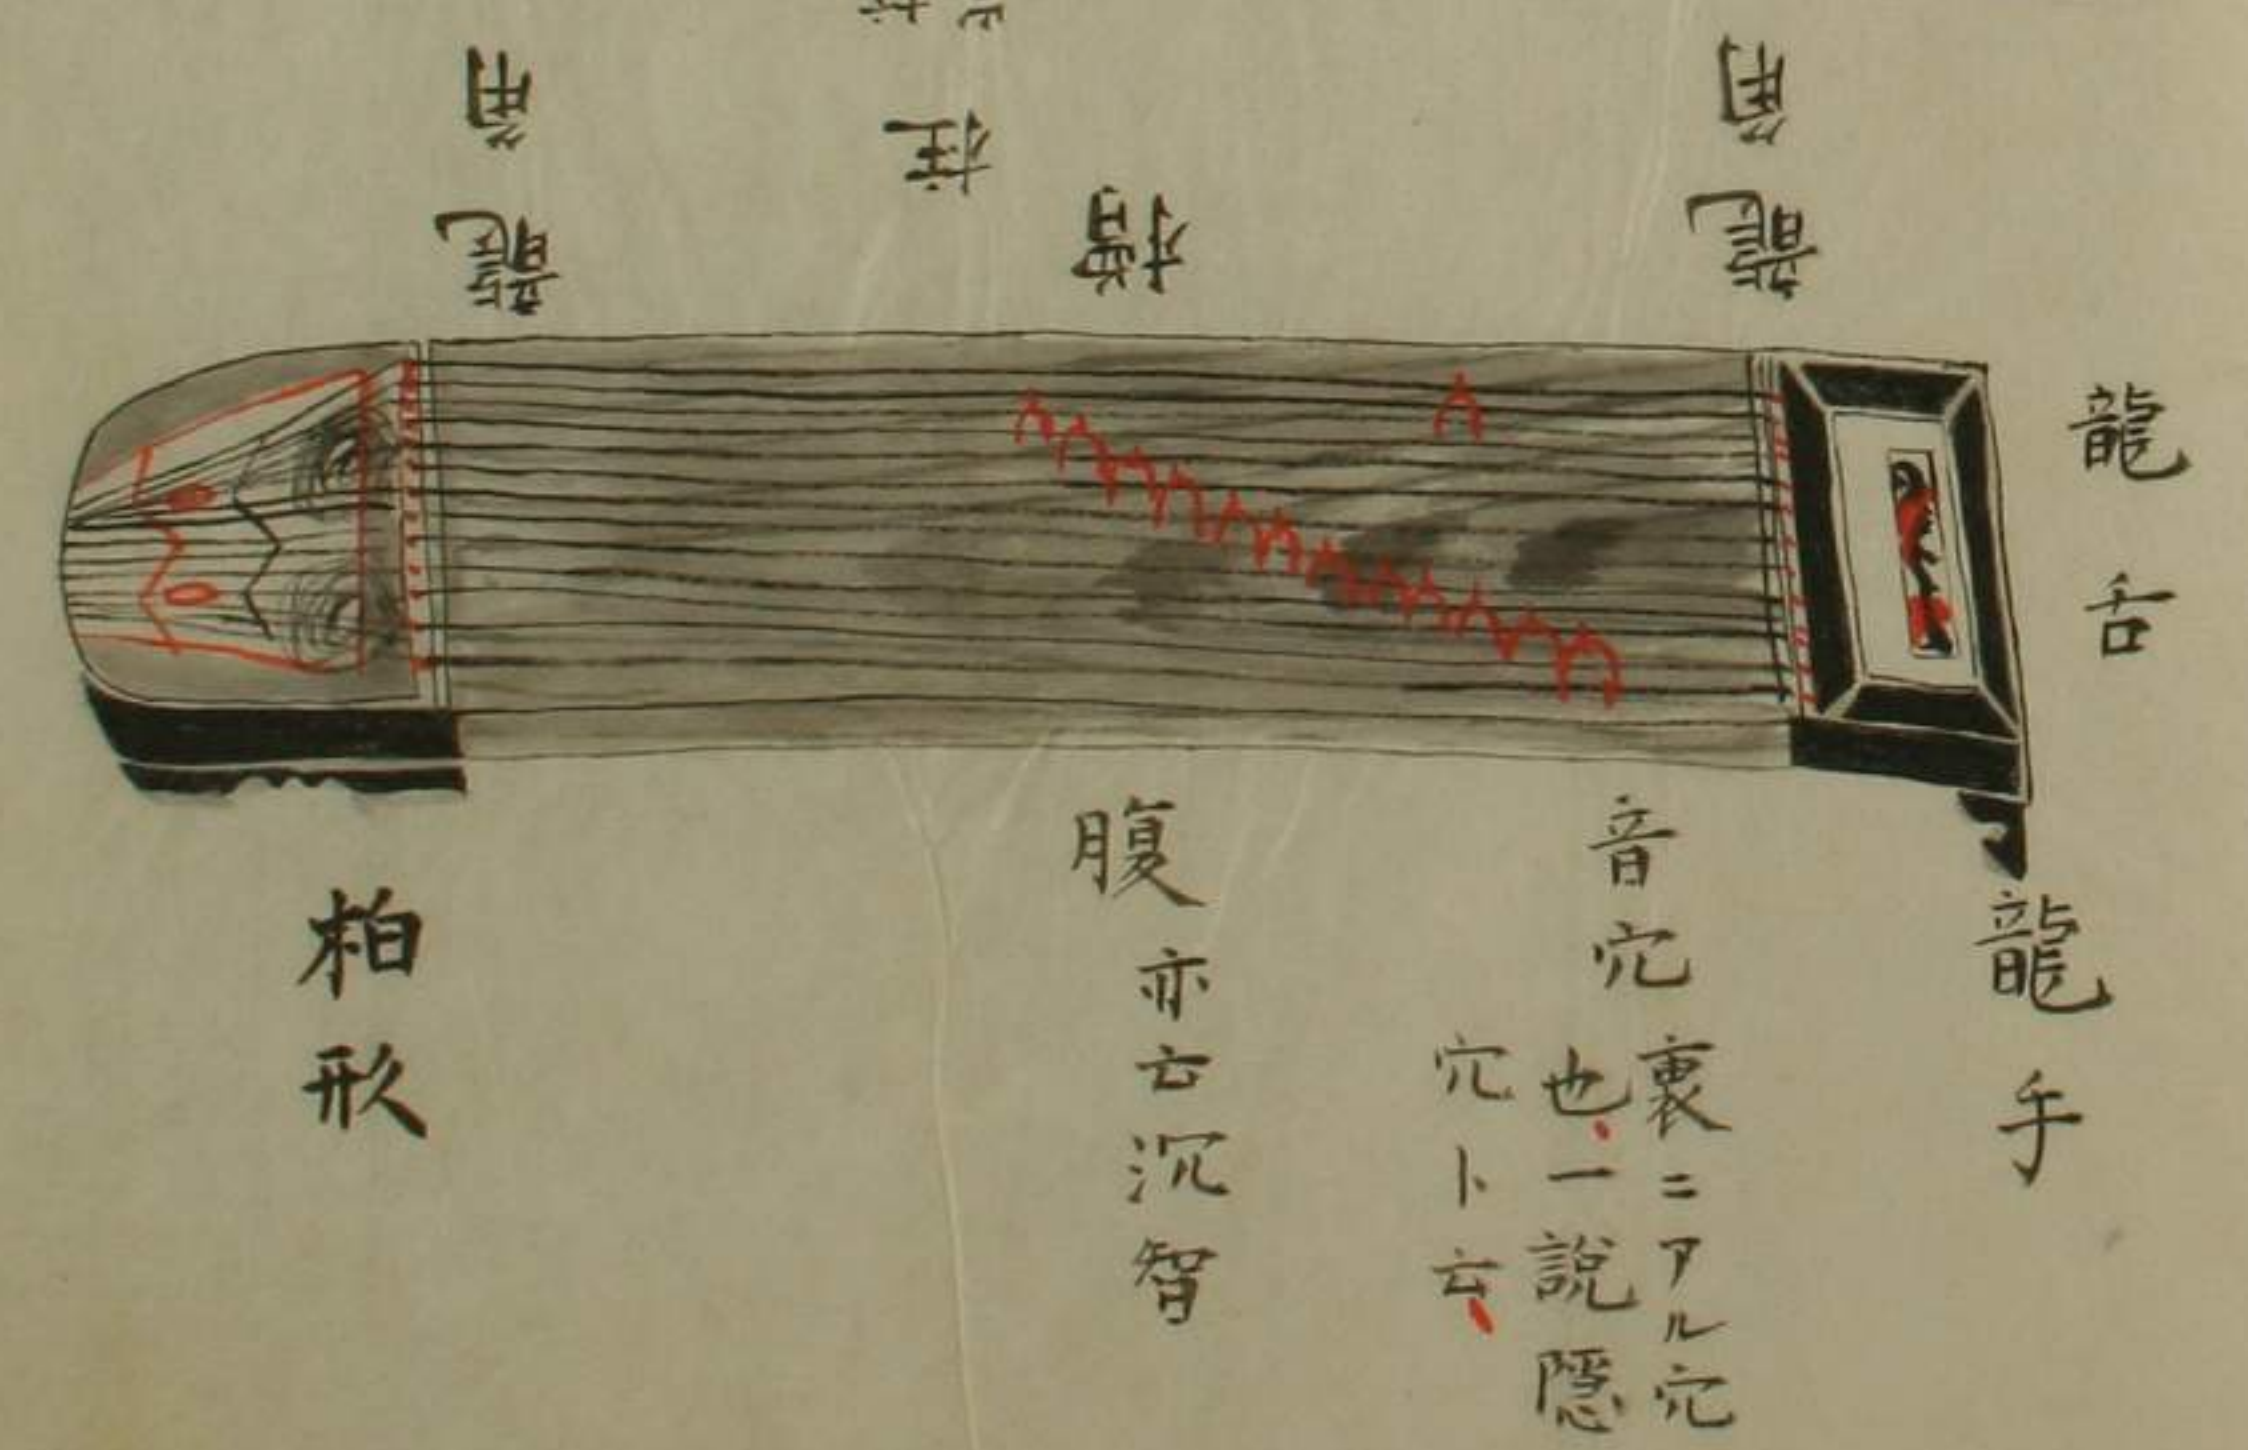 龍舌
龍角
槽
柱
龍角
龍手
音穴
裏ニアル穴
也、一説隠
穴ト云、
腹
亦云沉智
柏形